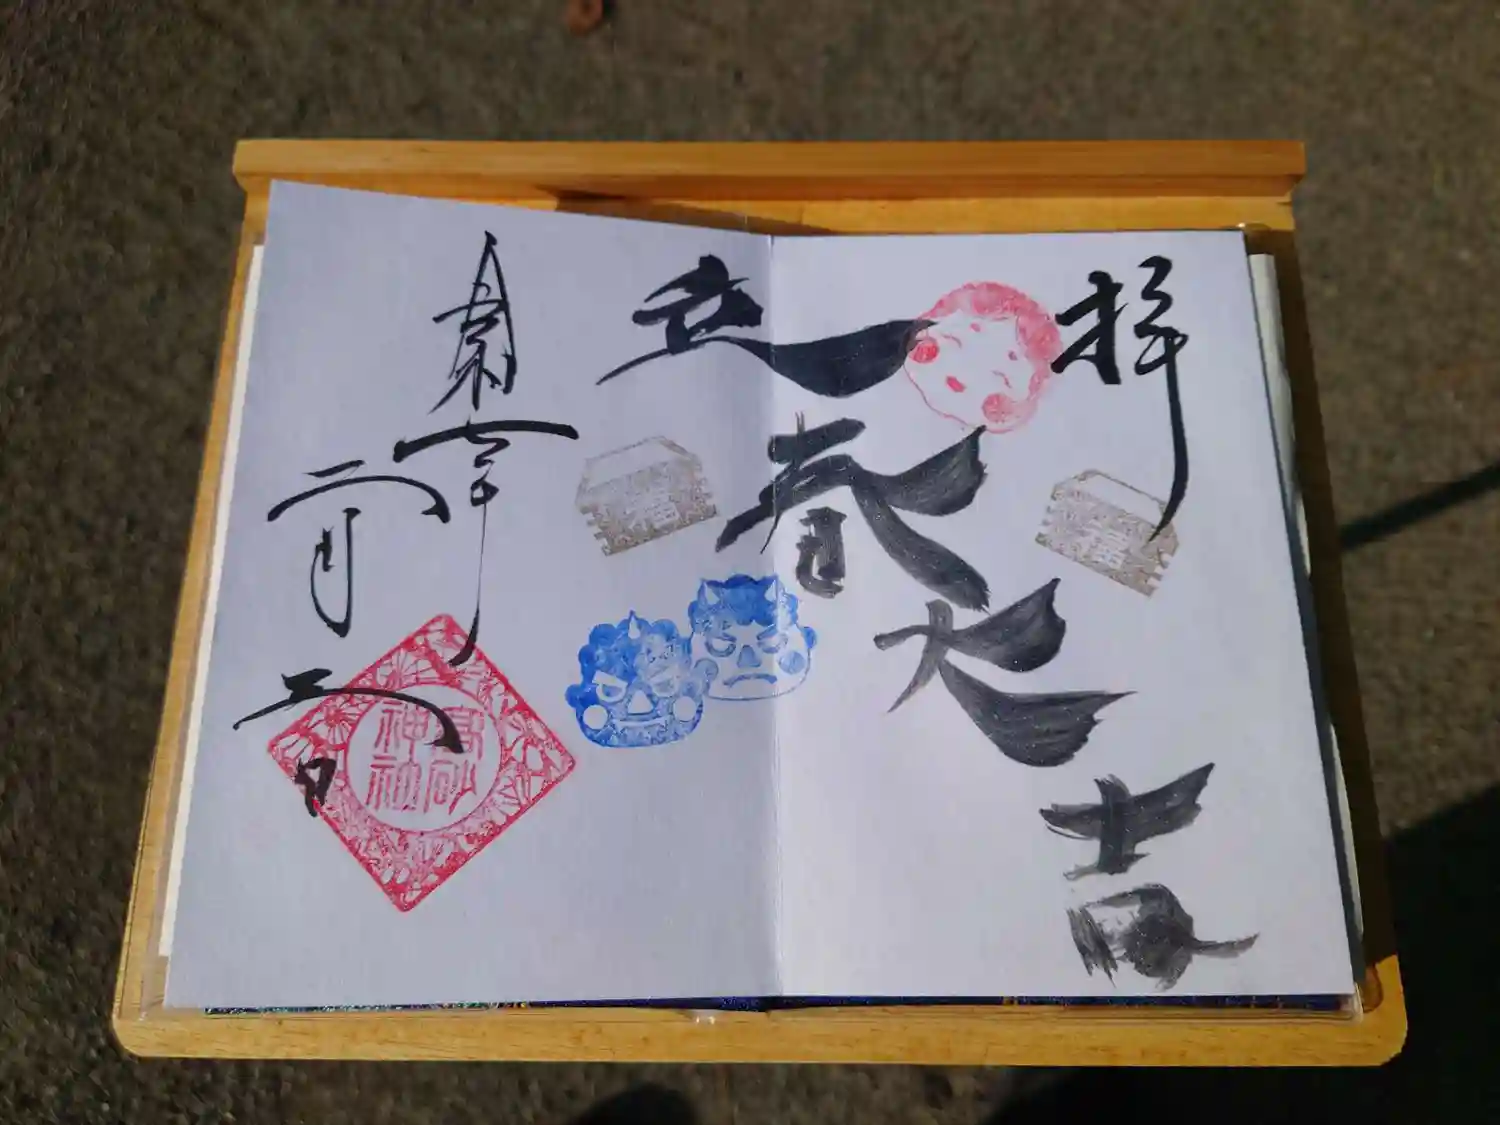 拝
立春大吉
福
福
令和七年
二月三日
高砂
神社